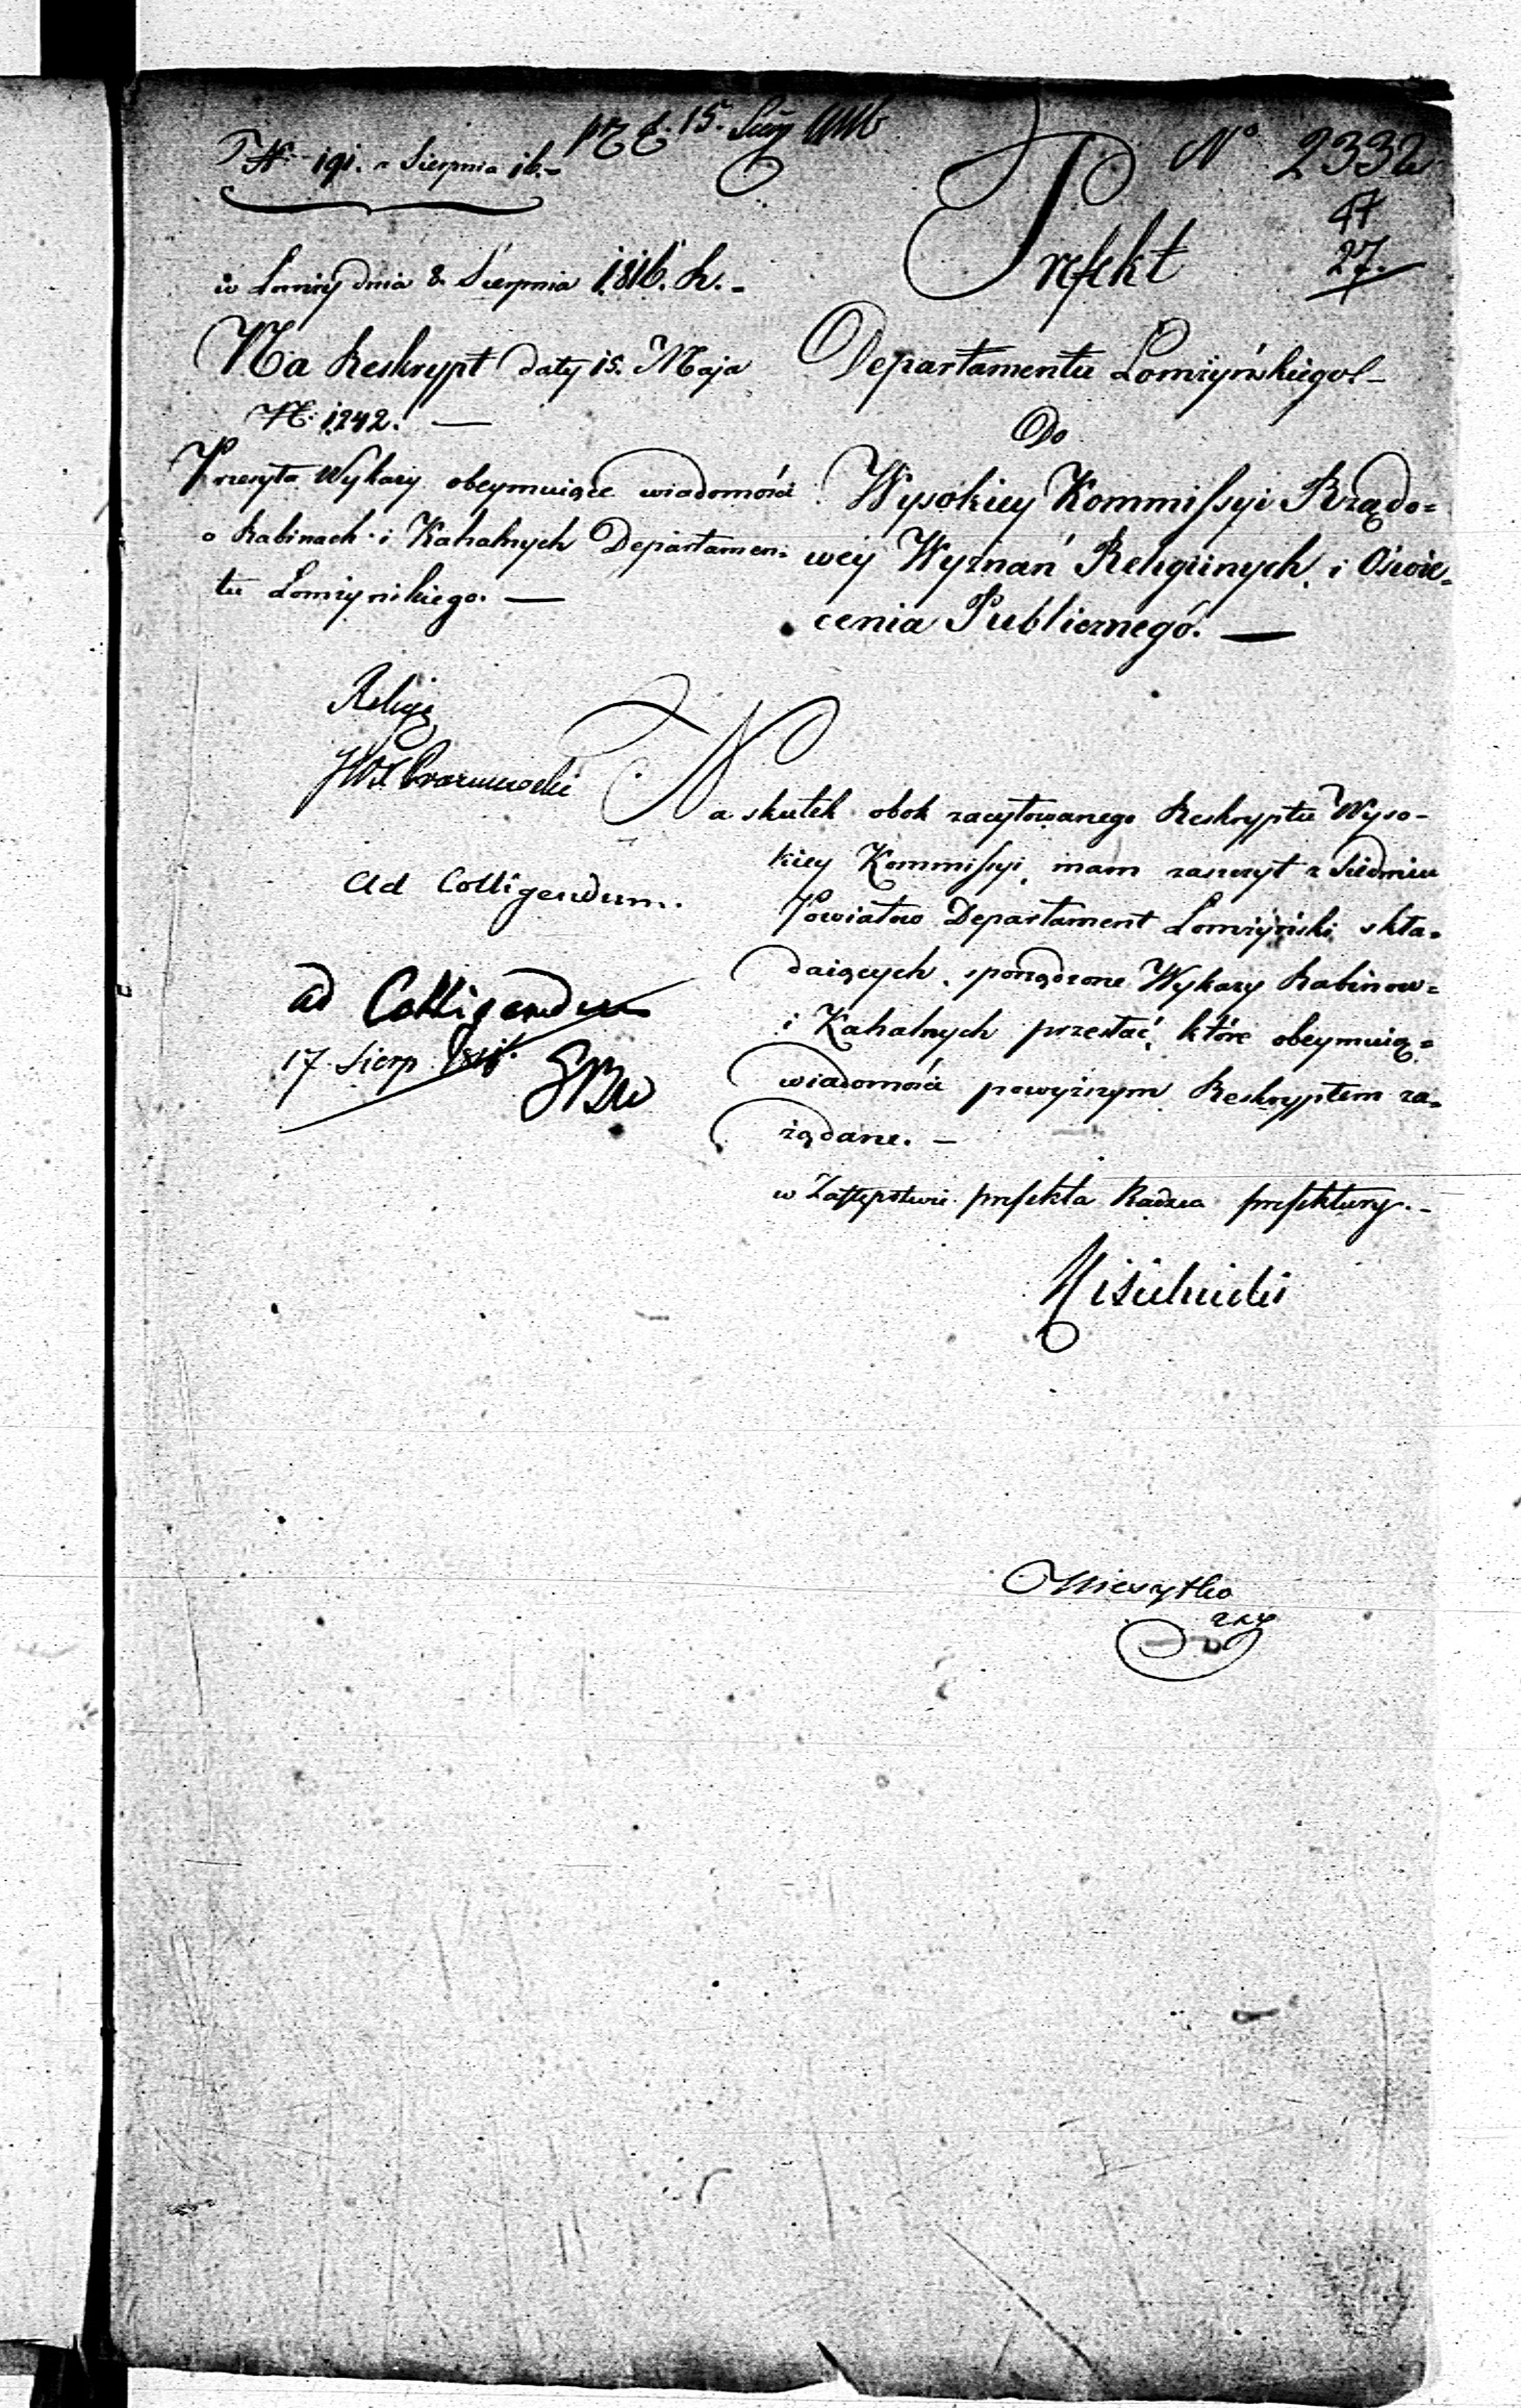 N. 191. a Sierpnia 16.-
pr. d. 15. Sierp 1816
N° 2332
47
27.
Prefekt
w Łomży dnia 8. Sierpnia 1816. R.-
Na Reskrypt daty 15. Maja
N: 1242. —
Departamentu Łomżyńskiego.-
Do
Przesyła Wykazy obeymuiące wiadomości
o Rabinach i Kahalnych Departamen:
tu Łomżyńskiego. —
Wysokiey Kommissyi Rządo=
wey Wyznań Religiinych, i Oświe=
cenia Publicznego. —
Religii
JWX Prazmowski
Ad Colligendum.
ad Colligendum
17 Sierp. 1816.
Na skutek obok zacytowanego Reskryptu Wyso-
kiey Kommissyi, mam zaszczyt z siedmiu
Powiatow Departament Łomżyński skła=
daiących, sporządzone Wykazy Rabinow=
i Kahalnych przesłać, które obeymuią=
wiadomości powyższym Reskryptem za=
żądane. —
w Zastępstwie prefekta Radzca prefektury.-